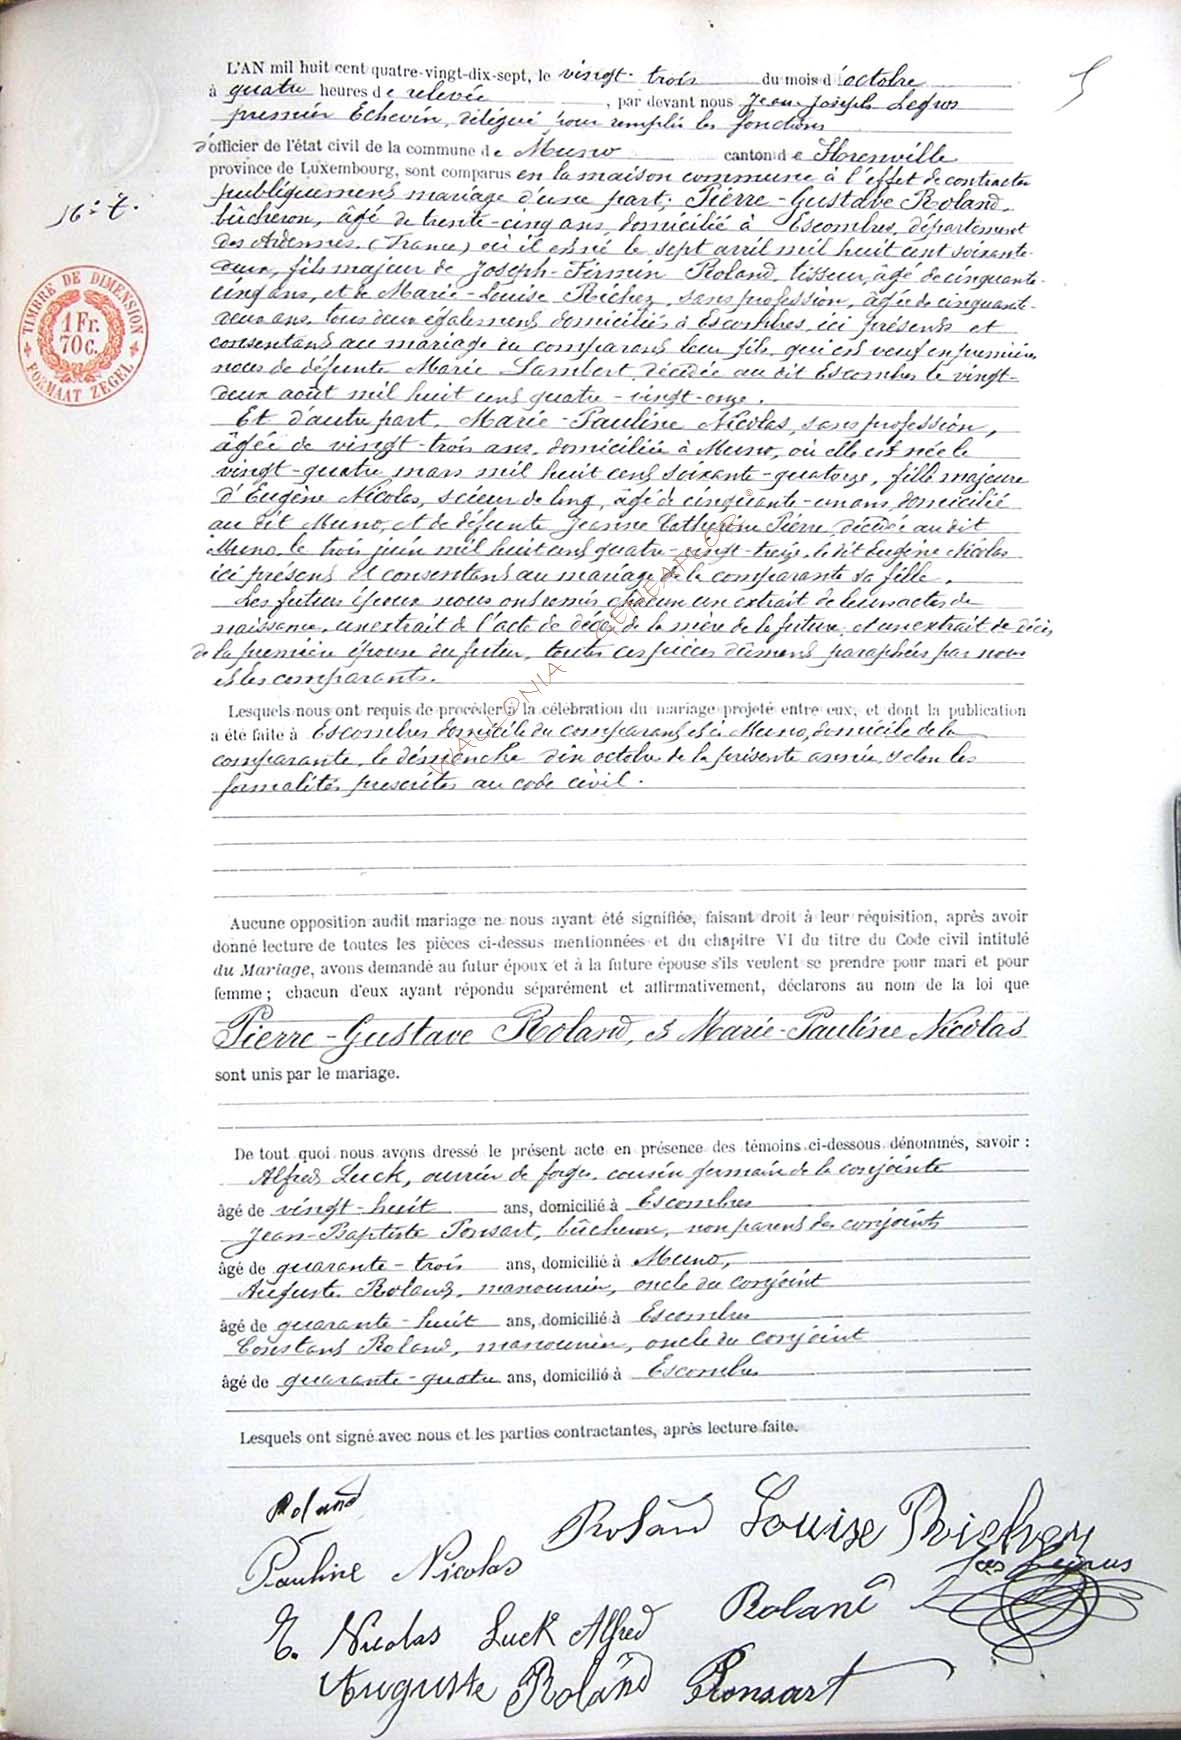 L'AN mil huit cent quatre-vingt-dix-sept, le vingt-trois du mois d'octobre
à quatre heures de relevée, par devant nous Jean Joseph Legros
premier Echevin, délégué pour remplir les fonctions
d'officier de l'état civil de la commune de Muno canton de Florenville
province de Luxembourg, sont comparus en la maison commune à l'effet de contracter
publiquement mariage d'une part; Pierre-Gustave Roland,
bûcheron, âgé de trente-cinq ans, domicilié à Escombres, département
des Ardennes (France) où il est né le sept avril mil huit cent soixante-
deux, fils majeur de Joseph-Firmin Roland, tisseur, âgé de cinquante-
cinq ans, et de Marie-Louise Richez, sans profession, âgée de cinquante-
deux ans, tous deux également domiciliés à Escombres, ici présents et
consentans au mariage du comparant leur fils, qui est veuf en premières
noces de défunte Marie Lambert, décédée au dit Escombres le vingt-
deux août mil huit cent quatre-vingt-onze.
Et d'autre part, Marie-Pauline Nicolas, sans profession,
âgée de vingt-trois ans, domiciliée à Muno, où elle est née le
vingt-quatre mars mil huit cent soixante-quatorze, fille majeure
d'Eugène Nicolas, scieur de long, âgé de cinquante-un ans, domicilié
au dit Muno, et de défunte Jeanne Catherine Pierre, décédée au dit
Muno, le trois juin mil huit cent quatre-vingt-treize, le dit Eugène Nicolas
ici présent et consentant au mariage de la comparante sa fille.
Les futurs époux nous ont remis chacun un extrait de leurs actes de
naissance, un extrait de l'acte de décès de la mère de la future, et un extrait de décès
de la première épouse du futur, toutes ces pièces dûment paraphées par nous
et les comparants.
16=7.
TIMBRE DE DIMENSION
1 Fr.
70 c.
FORMAAT ZEGEL
WALLONIA GENEAFLOR
Lesquels nous ont requis de procéder à la célébration du mariage projeté entre eux, et dont la publication
a été faite à Escombres domicile du comparant et à Muno, domicile de la
comparante, le dimanche dix octobre de la présente année, selon les
formalités prescrites au code civil.
Aucune opposition audit mariage ne nous ayant été signifiée, faisant droit à leur réquisition, après avoir
donné lecture de toutes les pièces ci-dessus mentionnées et du chapitre VI du titre du Code civil intitulé
du Mariage, avons demandé au futur époux et à la future épouse s'ils veulent se prendre pour mari et pour
femme; chacun d'eux ayant répondu séparément et affirmativement, déclarons au nom de la loi que
Pierre-Gustave Roland, et Marie-Pauline Nicolas
sont unis par le mariage.
De tout quoi nous avons dressé le présent acte en présence des témoins ci-dessous dénommés, savoir :
Alfred Luck, ouvrier de forges, cousin germain de la conjointe
âgé de vingt-huit ans, domicilié à Escombres
Jean-Baptiste Ponsart, bûcheron, non parent des conjoints
âgé de quarante-trois ans, domicilié à Muno,
Auguste Roland, manouvrier, oncle du conjoint
âgé de quarante-huit ans, domicilié à Escombres
Constant Roland, manouvrier, oncle du conjoint
âgé de quarante-quatre ans, domicilié à Escombres
Lesquels ont signé avec nous et les parties contractantes, après lecture faite.
Roland
Roland Louise Richez
Pauline Nicolas
Legros
Roland
E. Nicolas Luck Alfred
Auguste Roland Ponsart